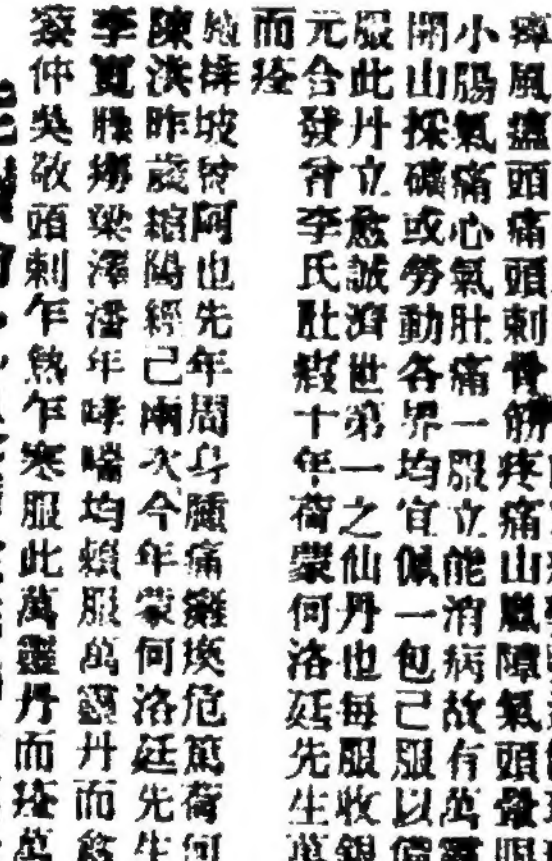 瘴風瘟頭痛頭刺骨筋疼痛山嵐障氣頭暈眼
小腸氣痛心氣肚痛一服立能消病故有萬靈
開山採礦或勞動各界均宜佩一包己服以備
服此丹立愈誠濟世第一之仙丹也每服收銀
元合發曾李氏肚痛十年荷蒙何洛廷先生萬
而痊
梹坡曾阿也先年周身腫痛癱瘓危篤荷何
陳洪昨歲縮陽經己兩次今年蒙何洛廷先生
李寬癆梁澤潘年哮喘均賴服萬靈丹而
蔡仲吳敬頭刺乍熱乍寒服此萬靈丹而痊萬